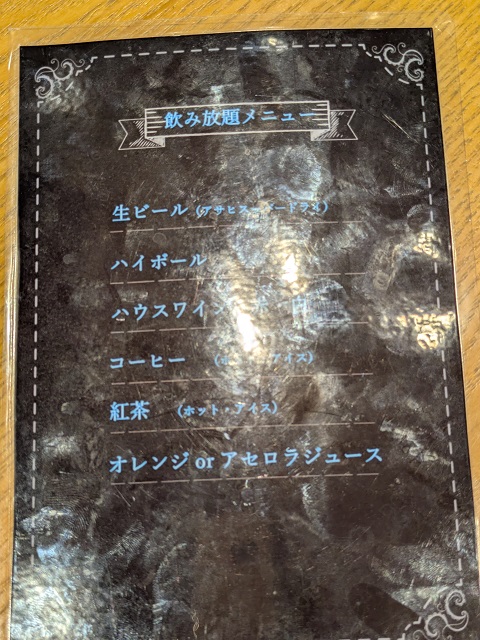 飲み放題メニュー
生ビール (アサヒスーパードライ)
ハイボール
ハウスワイン
コーヒー (ホット・アイス)
紅茶 (ホット・アイス)
オレンジ or アセロラジュース